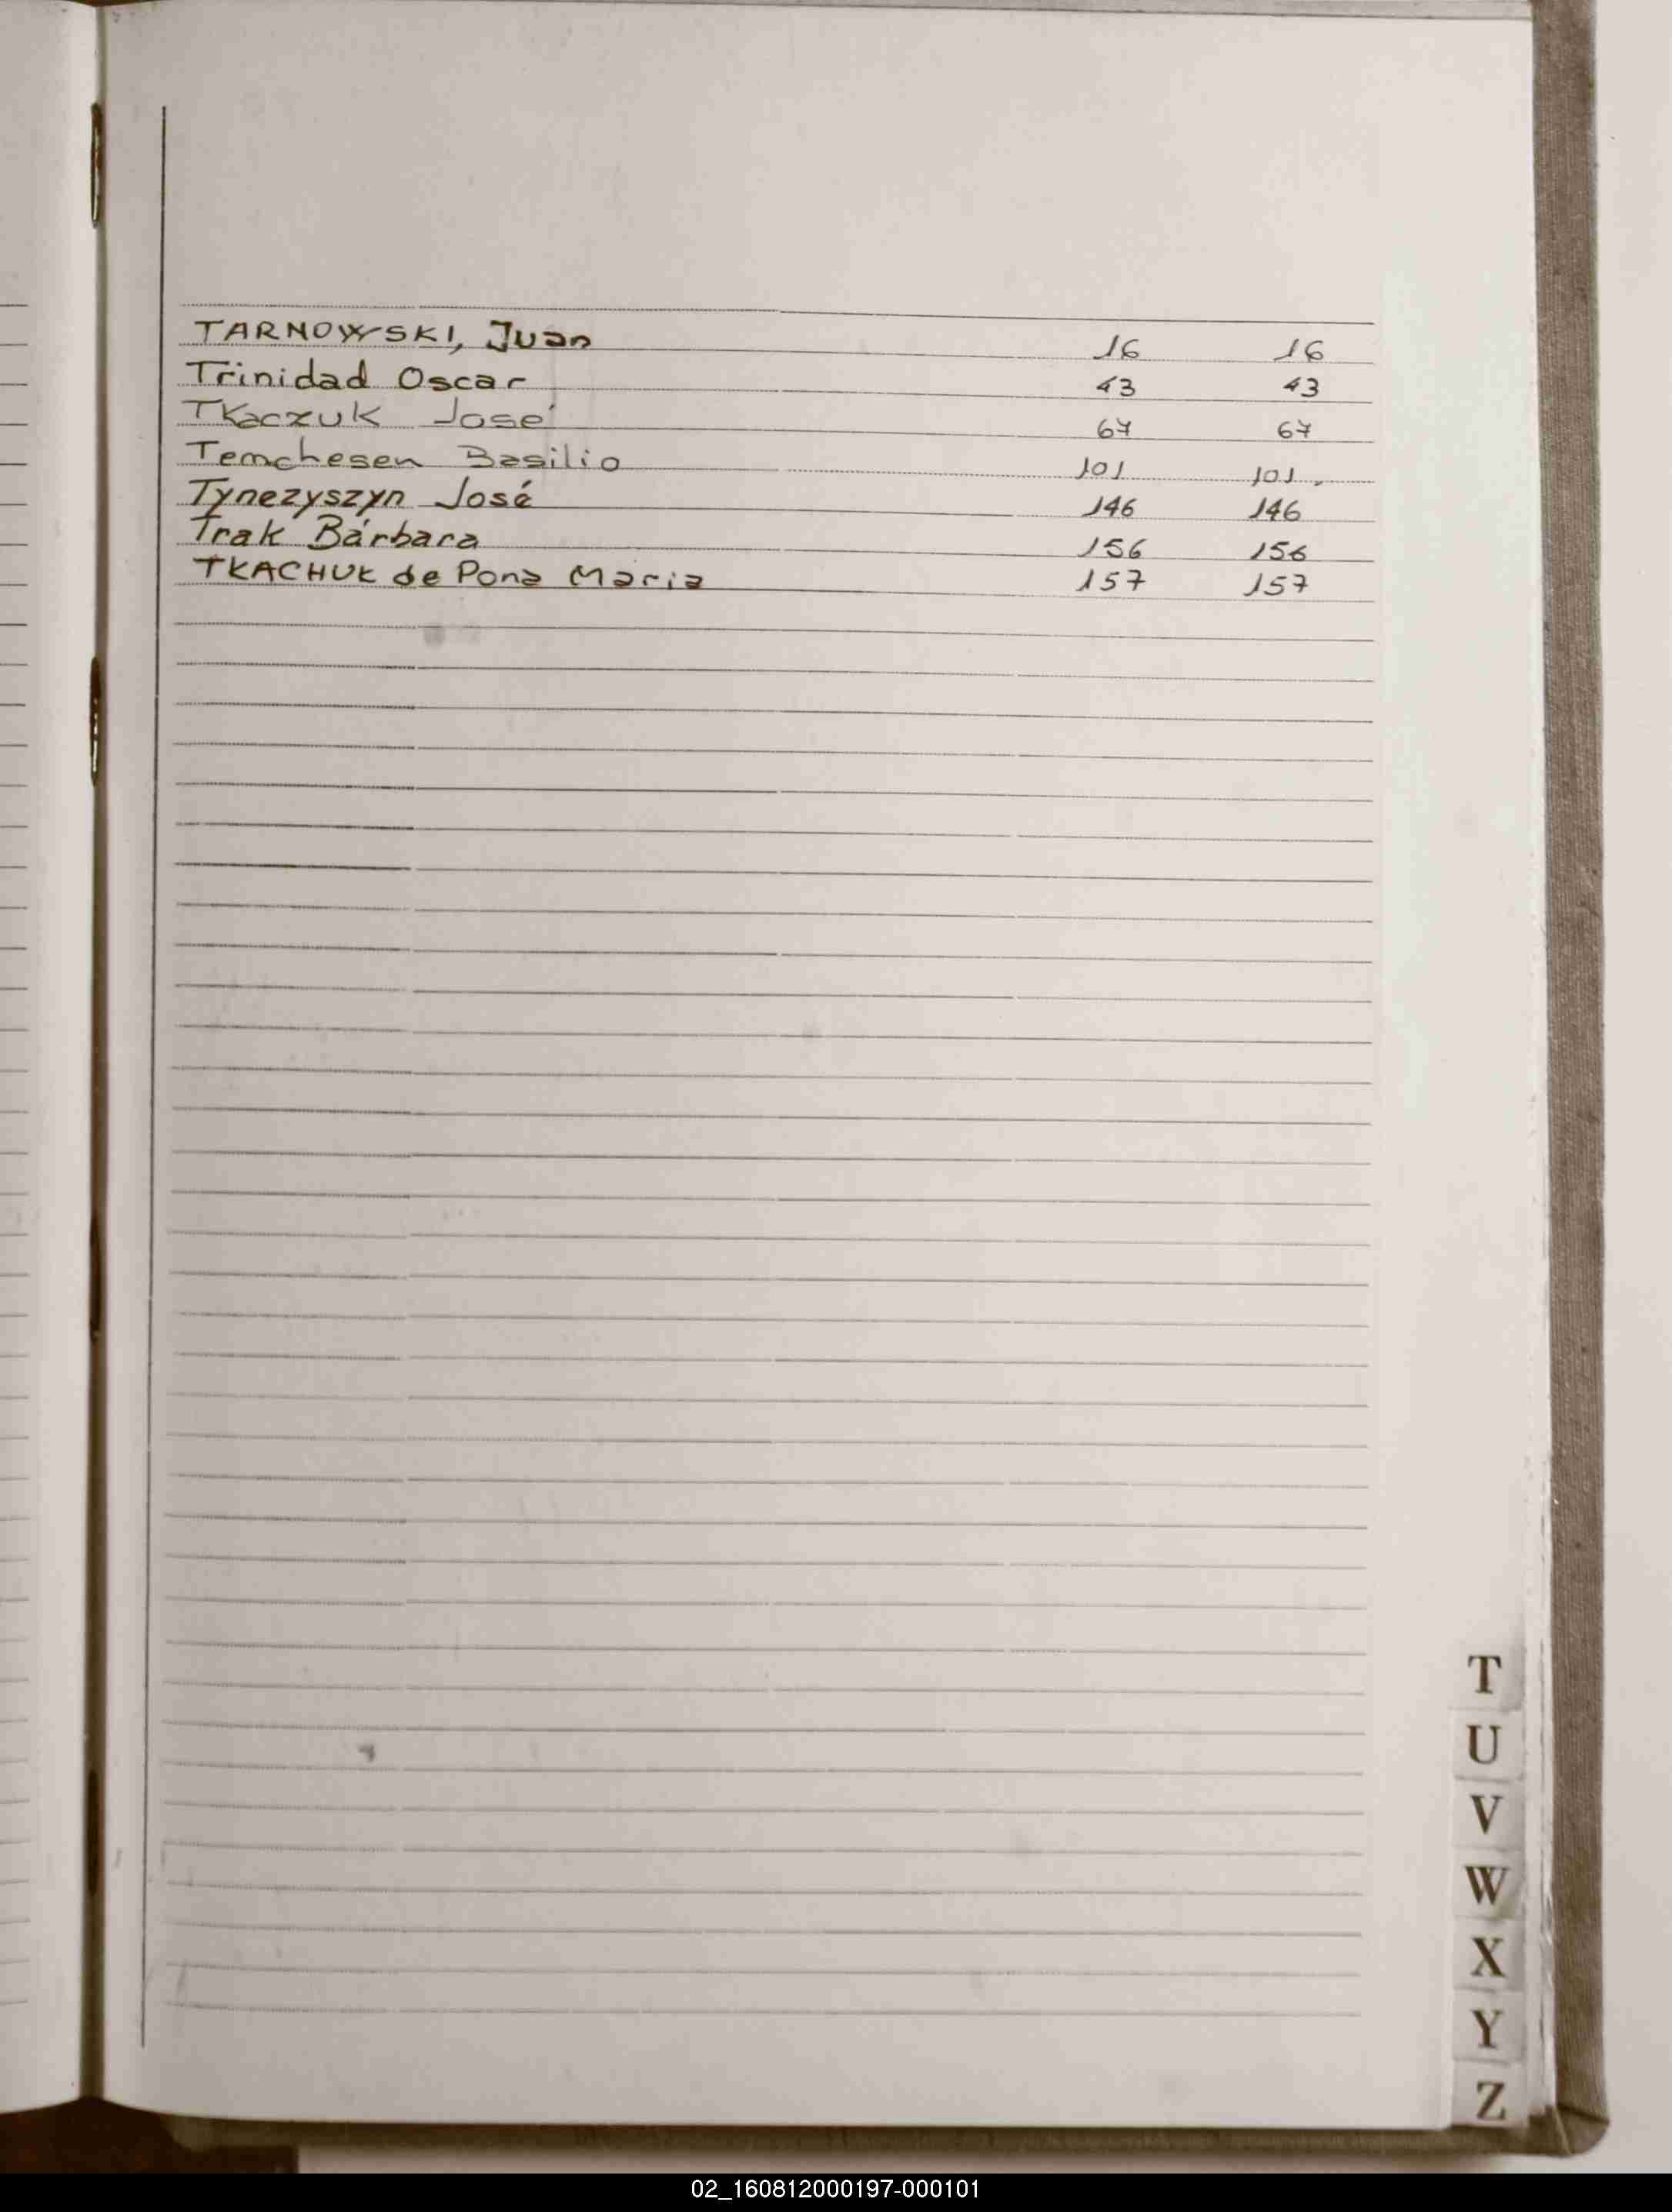 TARNOWSKI, Juan 16 16
Trinidad Oscar 43 43
TKaczuk José 67 67
Temchesen Basilio 101 101
Tynezyszyn José 146 146
Trak Bárbara 156 156
TKACHUK de Pona Maria 157 157
T
U
V
W
X
Y
Z
02_160812000197-000101